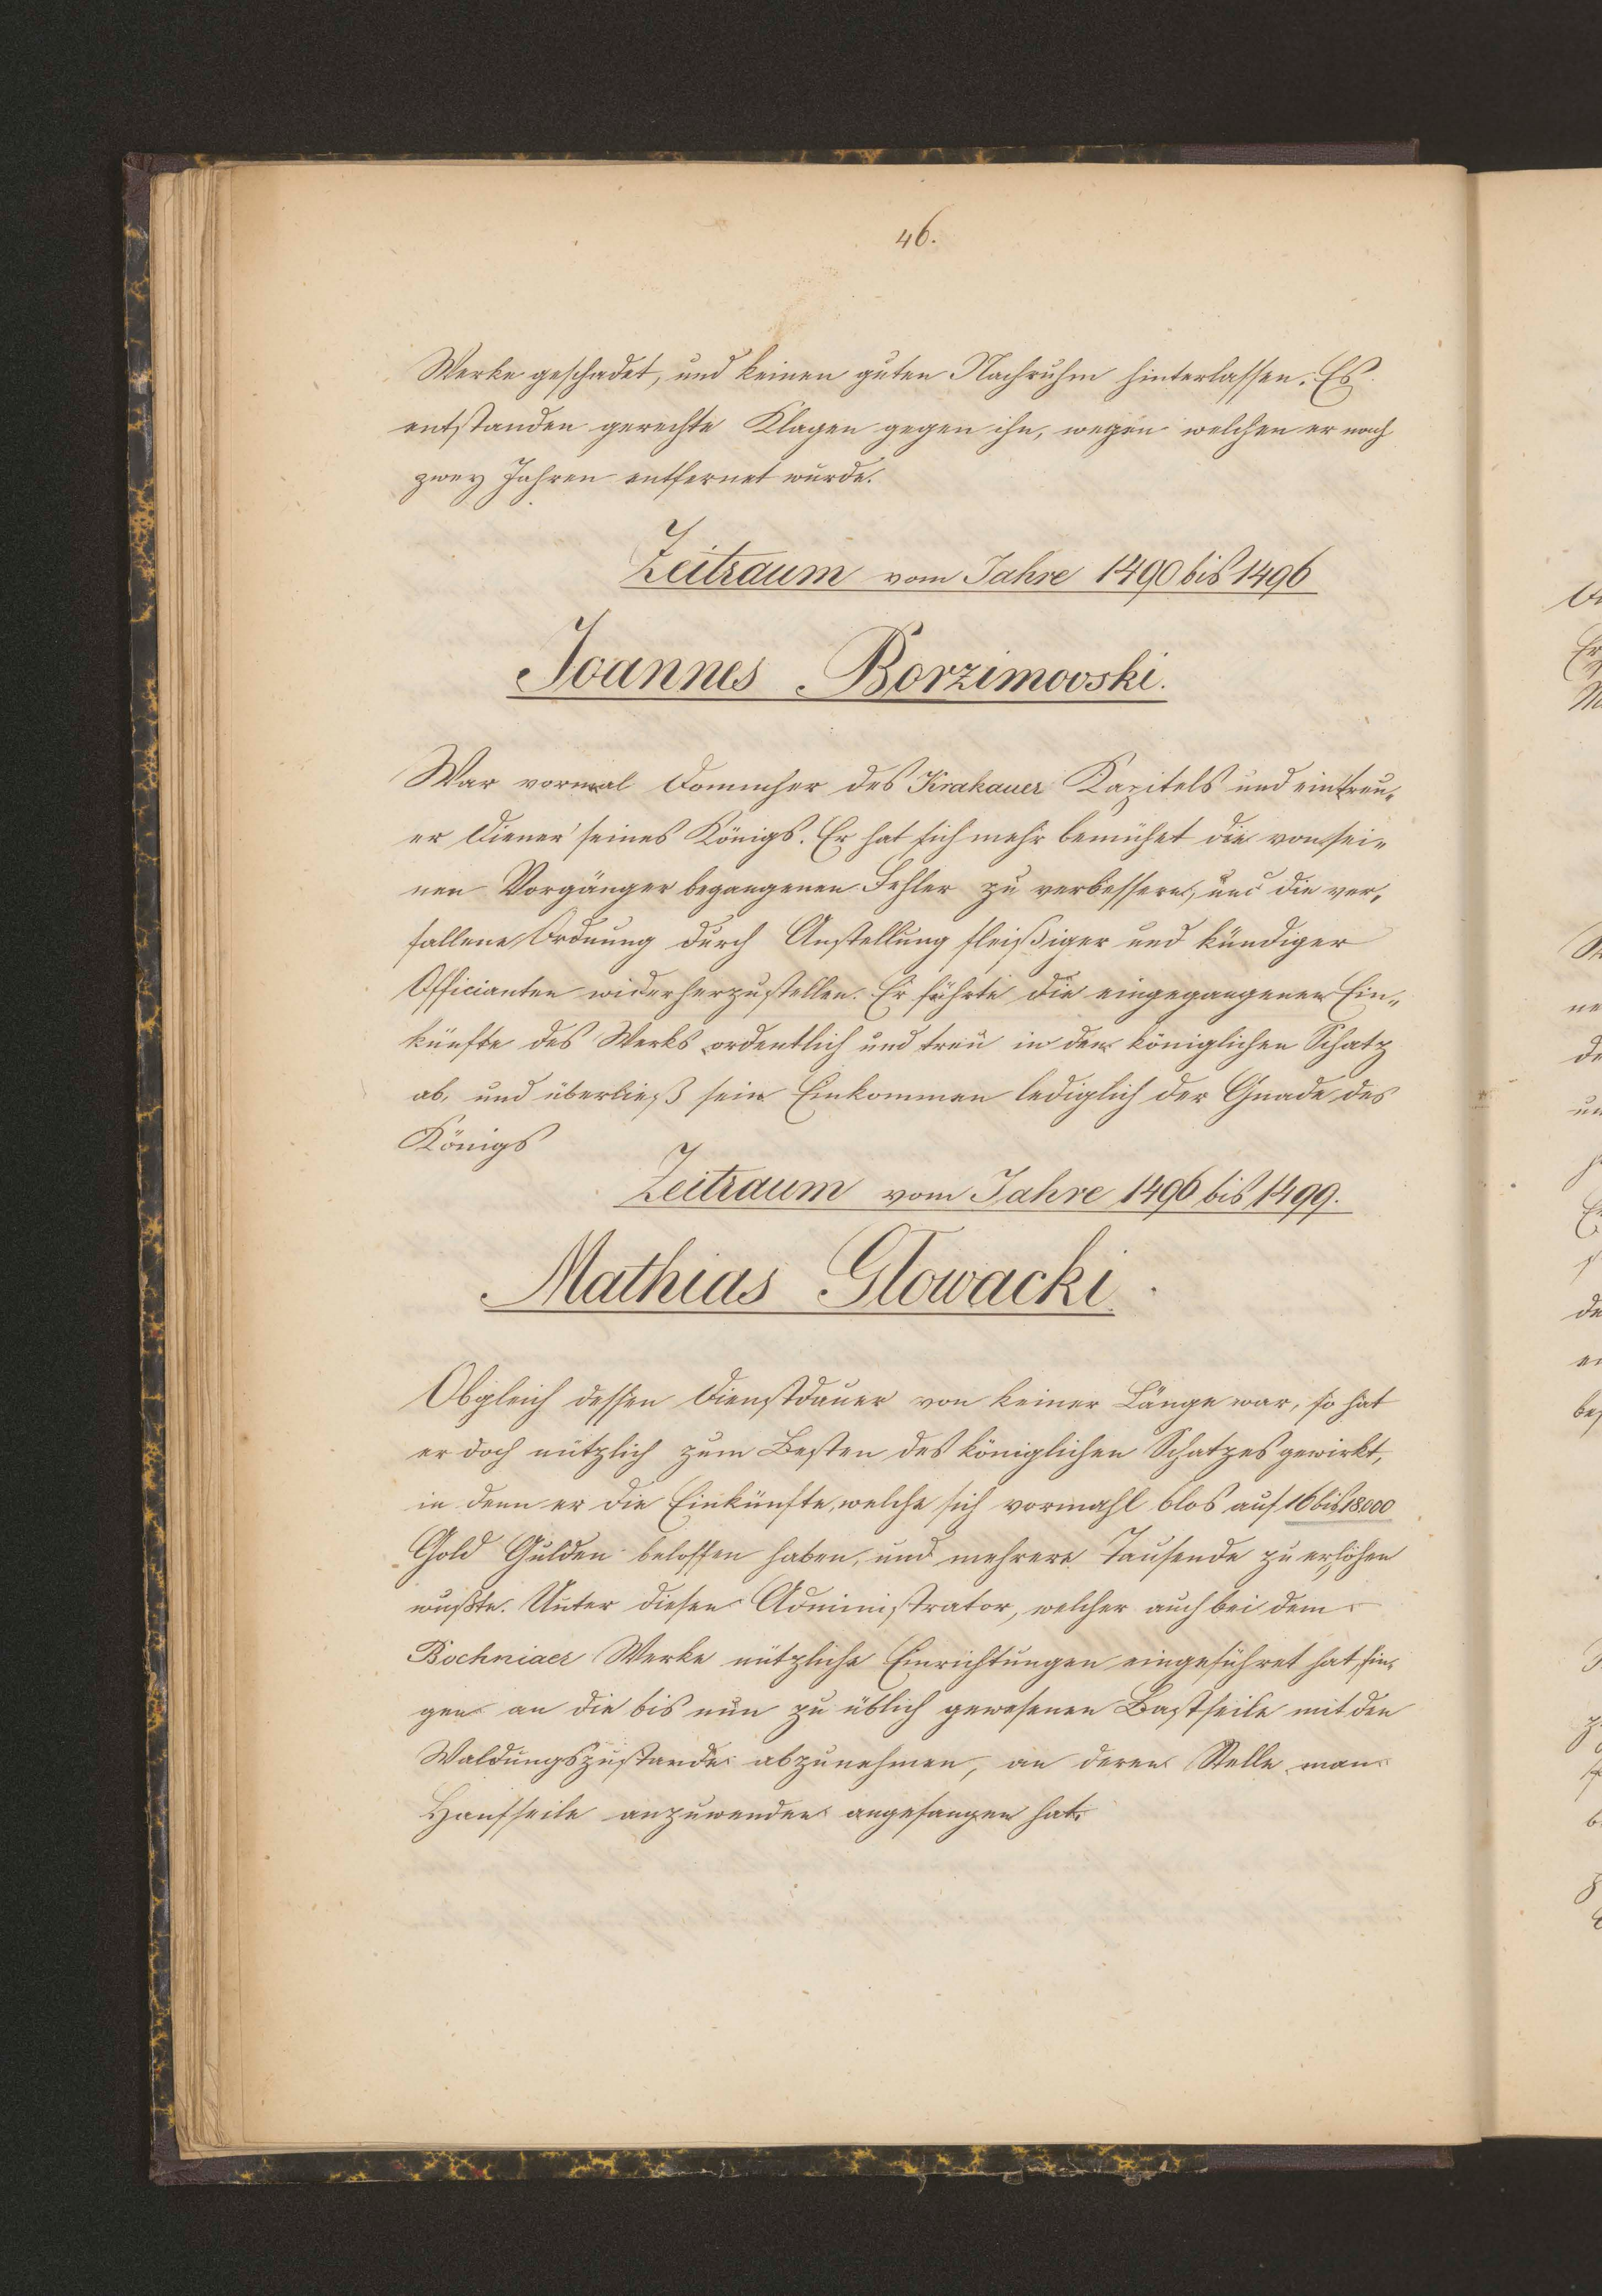 46.
Werke geschadet, und keinen guten Nachruhm hinterlassen. Es
entstanden gerechte Klagen gegen ihn, wegen welchen er nach
zwey Jahren entfernet wurde.
Zeitraum vom Jahre 1490 bis 1496
Joannes Borzimovski.
War vormal Domher des Krakauer Kapitels und ein treu„
er Diener seines Königs. Er hat sich mehr bemühet die von sei„
nen Vorgänger begangenen Fehler zu verbessern, und die ver„
fallene Ordnung durch Anstellung fleißiger und kündiger
Officianten widerherzustellen. Er führte die eingegangenen Ein„
künfte des Werks ordentlich und treu in den königlichen Schatz
ab, und überließ sein Einkommen lediglich der Gnade des
Königs
Zeitraum vom Jahre 1496 bis 1499.
Mathias Głowacki.
Obgleich dessen Dienstdauer von keiner Länge war, so hat
er doch nützlich zum Besten des königlichen Schatzes gewirkt,
in denn er die Einkünfte, welche sich vormahl blos auf 16 bis 18000
Gold Gulden beloffen haben, und mehrere Tausende zu erhöhen
wußte. Unter diesen Administrator, welcher auch bei dem
Bochniaer Werke nützliche Einrichtungen eingeführet hat, fin„
gen an die bis nun zu üblich gewesenen Bastseile mit den
Waldungszustande abzunehmen, an deren Stelle man
Hanfseile anzuwenden angefangen hat.